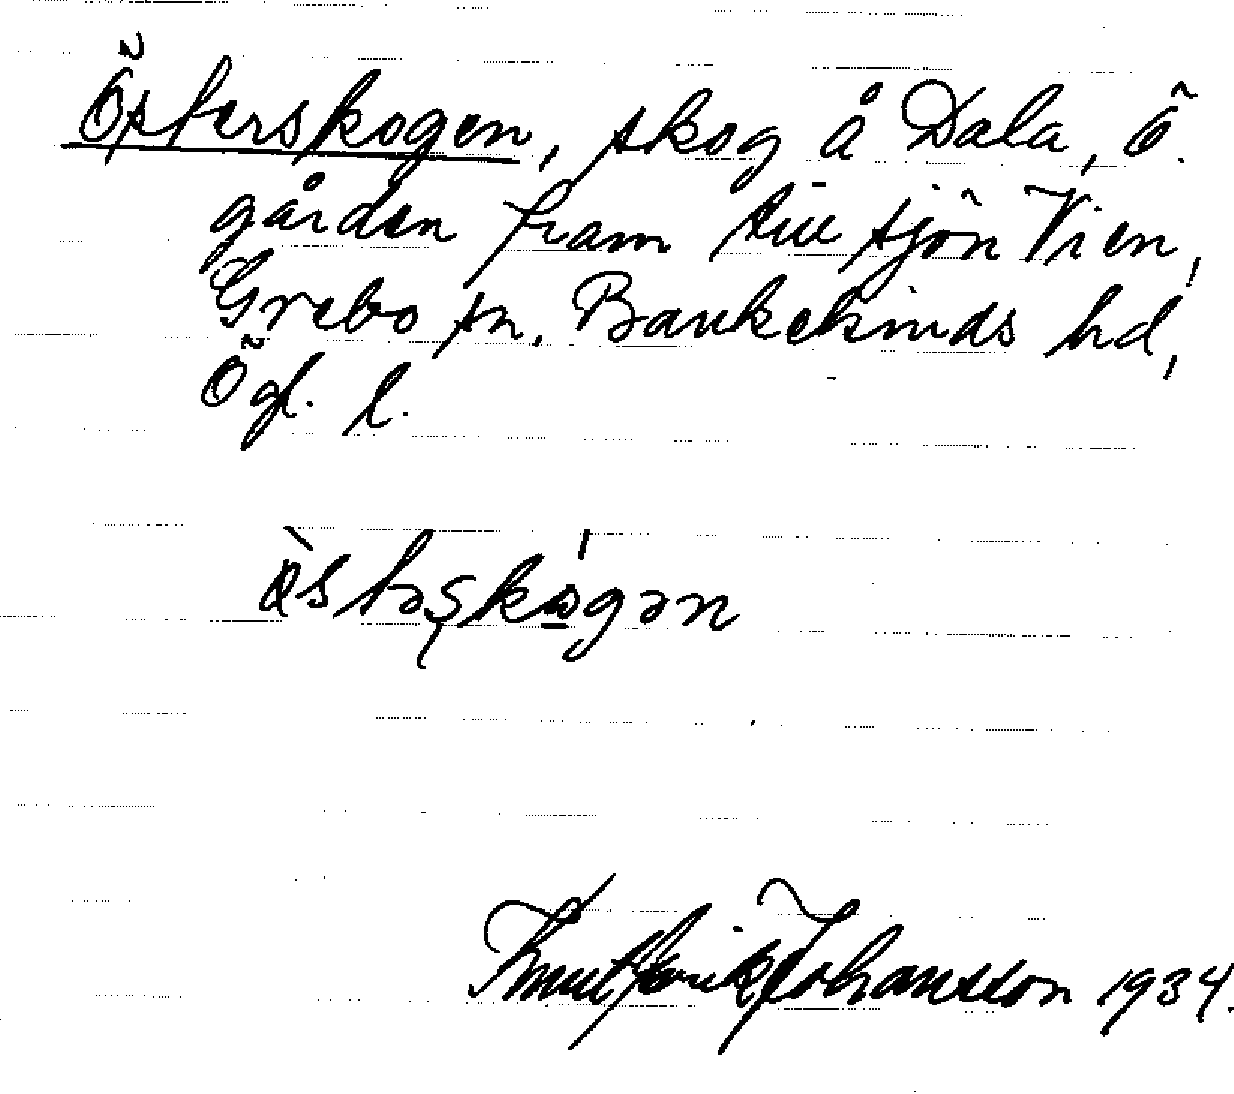 Österskogen, skog å Dala, Ö.
gården fram till sjön Vien,
Grebo sn, Bankekinds hd,
Ögl. l.
ö̀stəşkógən
Knut Erik Johansson 1934.